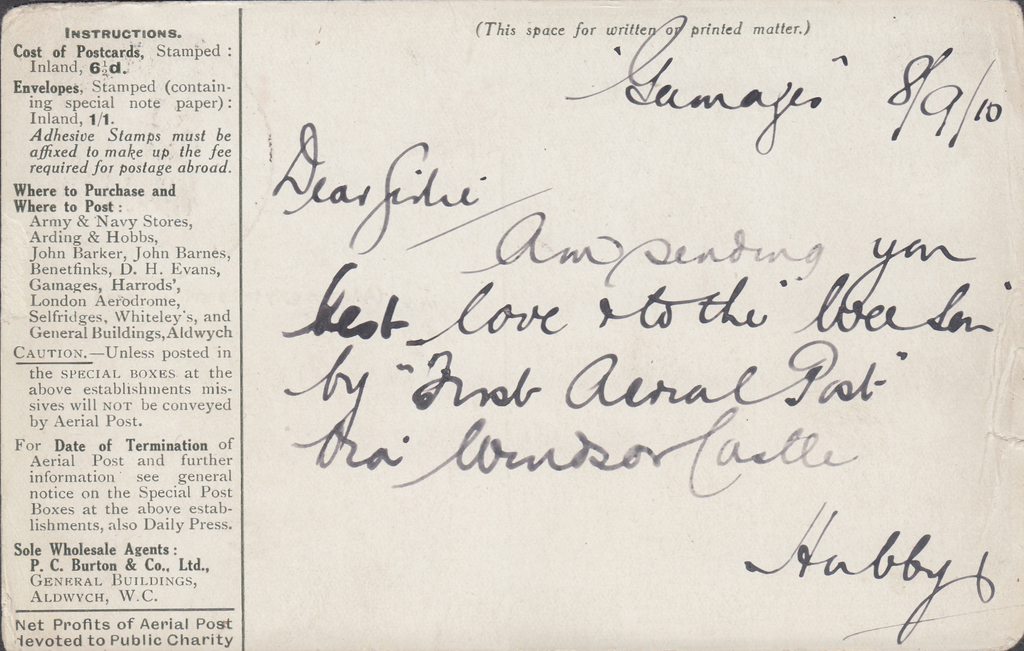 INSTRUCTIONS.
Cost of Postcards, Stamped :
Inland, 6½d.
Envelopes, Stamped (contain-
ing special note paper) :
Inland, 1/1.
Adhesive Stamps must be
affixed to make up the fee
required for postage abroad.
Where to Purchase and
Where to Post :
Army & Navy Stores,
Arding & Hobbs,
John Barker, John Barnes,
Benetfinks, D. H. Evans,
Gamages, Harrods',
London Aerodrome,
Selfridges, Whiteley's, and
General Buildings, Aldwych
CAUTION.—Unless posted in
the SPECIAL BOXES at the
above establishments mis-
sives will NOT be conveyed
by Aerial Post.
For Date of Termination of
Aerial Post and further
information see general
notice on the Special Post
Boxes at the above estab-
lishments, also Daily Press.
Sole Wholesale Agents :
P. C. Burton & Co., Ltd.,
GENERAL BUILDINGS,
ALDWYCH, W.C.
Net Profits of Aerial Post
devoted to Public Charity
(This space for written or printed matter.)
"Gamages" 8/9/10
Dear Girlie
Am sending you
best love & to the "wee son"
by "First Aerial Post"
via Windsor Castle
Hubby